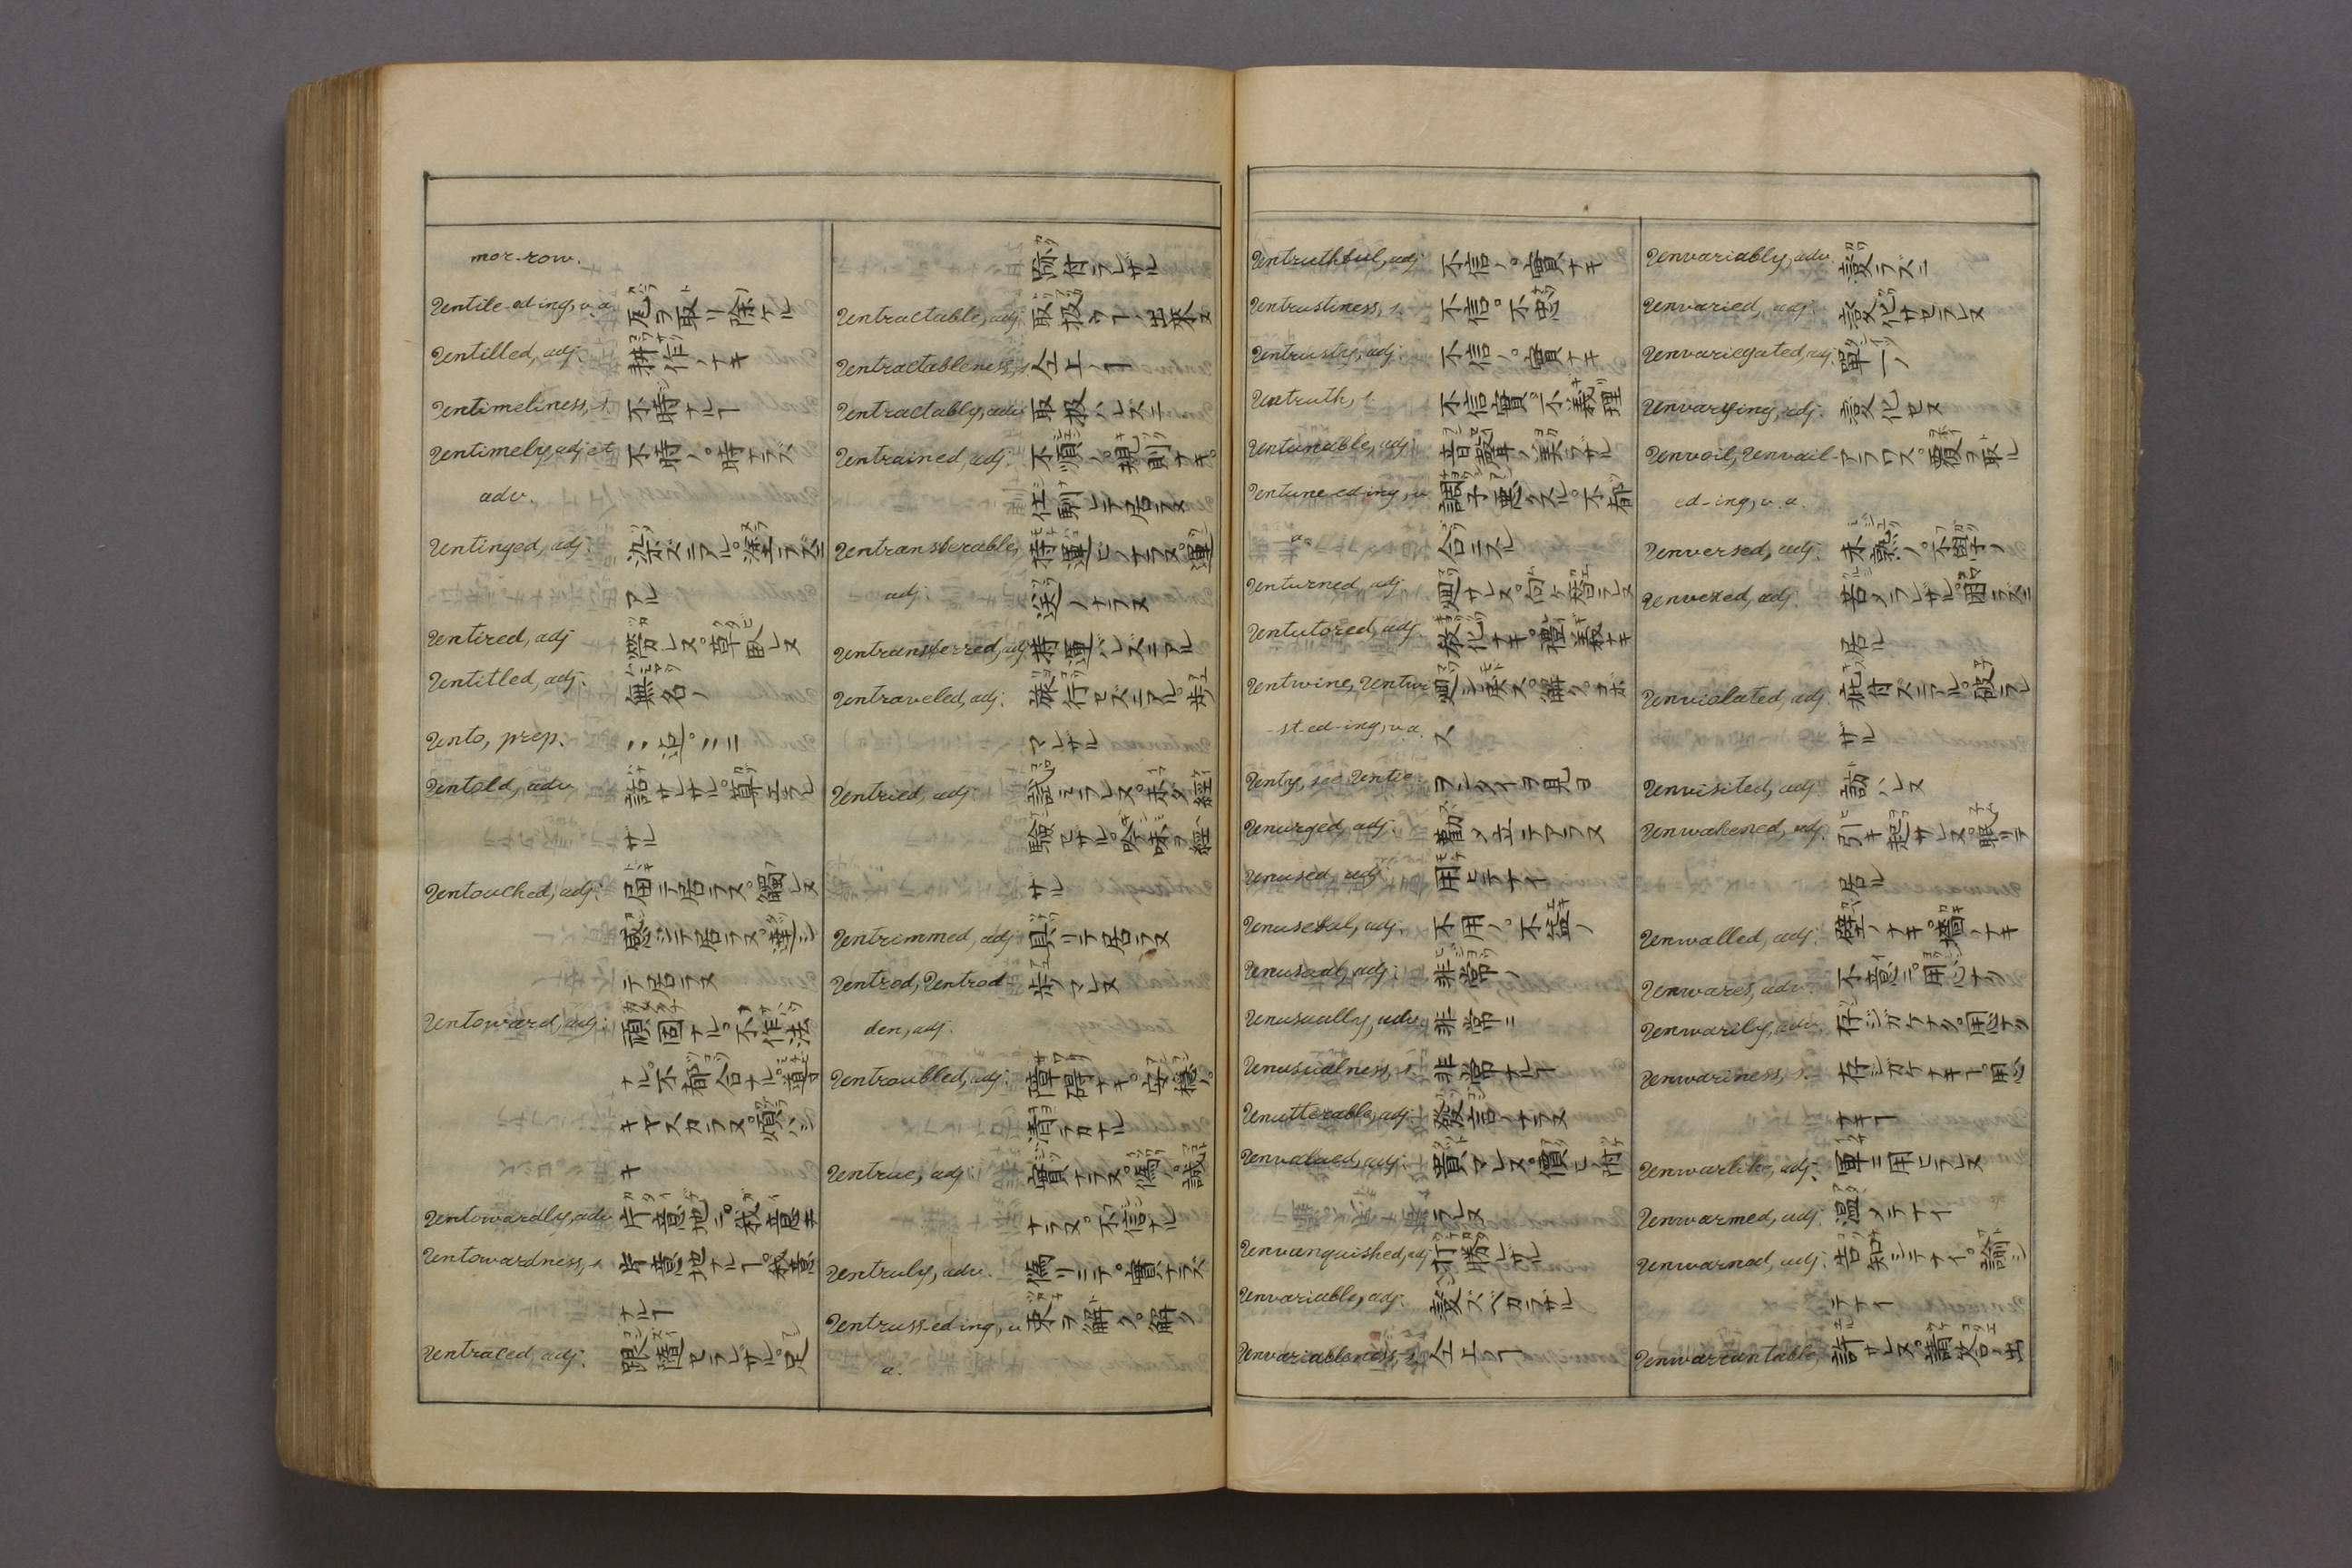 mor-row.
Untile-ed-ing, v.a. 瓦ヲ取リ除ケル
Untilled, adj. 耕作ノナキ
Untimeliness, s. 不時ナルヿ
Untimely, adj et 不時ノ。時ナラズ
adv.
Untinged, adj. 染ズニアル。塗ラズニ
アル
Untired, adj 労レヌ。草臥レヌ
Untitled, adj. 無名ノ
Unto, prep. 〃迠。〃ニ
Untold, adv. 話サレザル。算エラレ
ザル
Untouched, adj. 届テ居ラヌ。觸レヌ
感ジテ居ラヌ。達シ
テ居ラヌ
Untoward, adj. 頑固ナル。不作法
ナル。不都合ナル。導
キヤスカラヌ。煩ハシ
キ
Untowardly, adv. 片意地ニ。我意ニ
Untowardness, s. 片意地ナルヿ。我意
ナルヿ
Untraced, adj. 跟隨セラレザル。足
跡付ラレザル
Untractable, adj. 取扱フヿノ出来ヌ
Untractableness, s. 仝上ノヿ
Untractably, adv. 取扱ハレズニ
Untrained, adj. 不順ノ。規則ナキ。
仕馴レテ居ラヌ
Untransferable, 持運ビノナラヌ。運
adj. 送ノナラヌ
Untransferred, adj. 持運バレズニアル
Untraveled, adj. 旅行セズニアル。歩
マレザル
Untried, adj. 試ミラレヌ。未タ經
驗セザル。吟味ヲ經
ザル
Untrimmed, adj. 具リテ居ラヌ
Untrod, Untrod 歩マレヌ
den, adj.
Untroubled, adj. 障碍ナキ。安穏ノ。
清ラカナル
Untrue, adj. 實ナラヌ。僞ノ。誠
ナラヌ。不信ナル
Untruly, adv. 僞リニテ。實ナラズ
Untruss-ed-ing, v. 束ヲ解ク。解ク
a.
Untruthful, adj. 不信ノ。實ナキ
Untrustiness, s. 不信。不忠
Untrusty, adj. 不信ノ。實ナキ
Untruth, s. 不信實。不義理
Untunable, adj. 音聲ノ美ラザル
Untune-ed-ing, v. 調子悪クスル。不都
a. 合ニスル
Unturned, adj. 廻サレヌ。向ケ替ラレヌ
Untutored, adj. 教化ナキ。禮義ナキ
Untwine, Untwi 廻シ戻ス。解ク。ホ
-st-ed-ing, v.a. ス
Unty, see Untie. ヲンタイヲ見ヨ
Unurged, adj. 勸メ立テアラヌ
Unused, adj. 用ヒテナイ
Unuseful, adj. 不用ノ。不益ノ
Unusual, adj. 非常ノ
Unusually, adv. 非常ニ
Unusualness, s. 非常ナルヿ
Unutterable, adj. 發言ノナラヌ
Unvalued, adj. 貴マレヌ。價ヒノ附
ラレヌ
Unvanquished, adj. 打勝レザル
Unvariable, adj. 變ズベカラザル
Unvariableness, s. 仝上ノヿ
Unvariably, adv. 變ラズニ
Unvaried, adj. 變化サセラレヌ
Unvariegated, adj. 單一ノ
Unvarying, adj. 變化セヌ
Unvail, Unveil- アラワス。覆ヲ取ル
ed-ing, v.a.
Unversed, adj. 未熟ノ。不學ノ
Unvexed, adj. 苦メラレザル。困ラズニ
居ル
Unviolated, adj. 疵付ズニアル。破ラレ
ザル
Unvisited, adj. 訪ハレヌ
Unwakened, adj. 引キ起サレヌ。眠ツテ
居ル
Unwalled, adj. 壁ノナキ。墻ノナキ
Unwares, adv. 不意ニ。用心ナク
Unwarily, adv. 存ジガケナク。用心ナク
Unwariness, s. 存ジガケナキヿ。用心
ナキヿ
Unwarlike, adj. 軍ニ用ヒラレヌ
Unwarmed, adj. 温メテナイ
Unwarned, adj. 告知シテナイ。諭シ
テナイ
Unwarrantable, 許サレヌ。請合ノ出